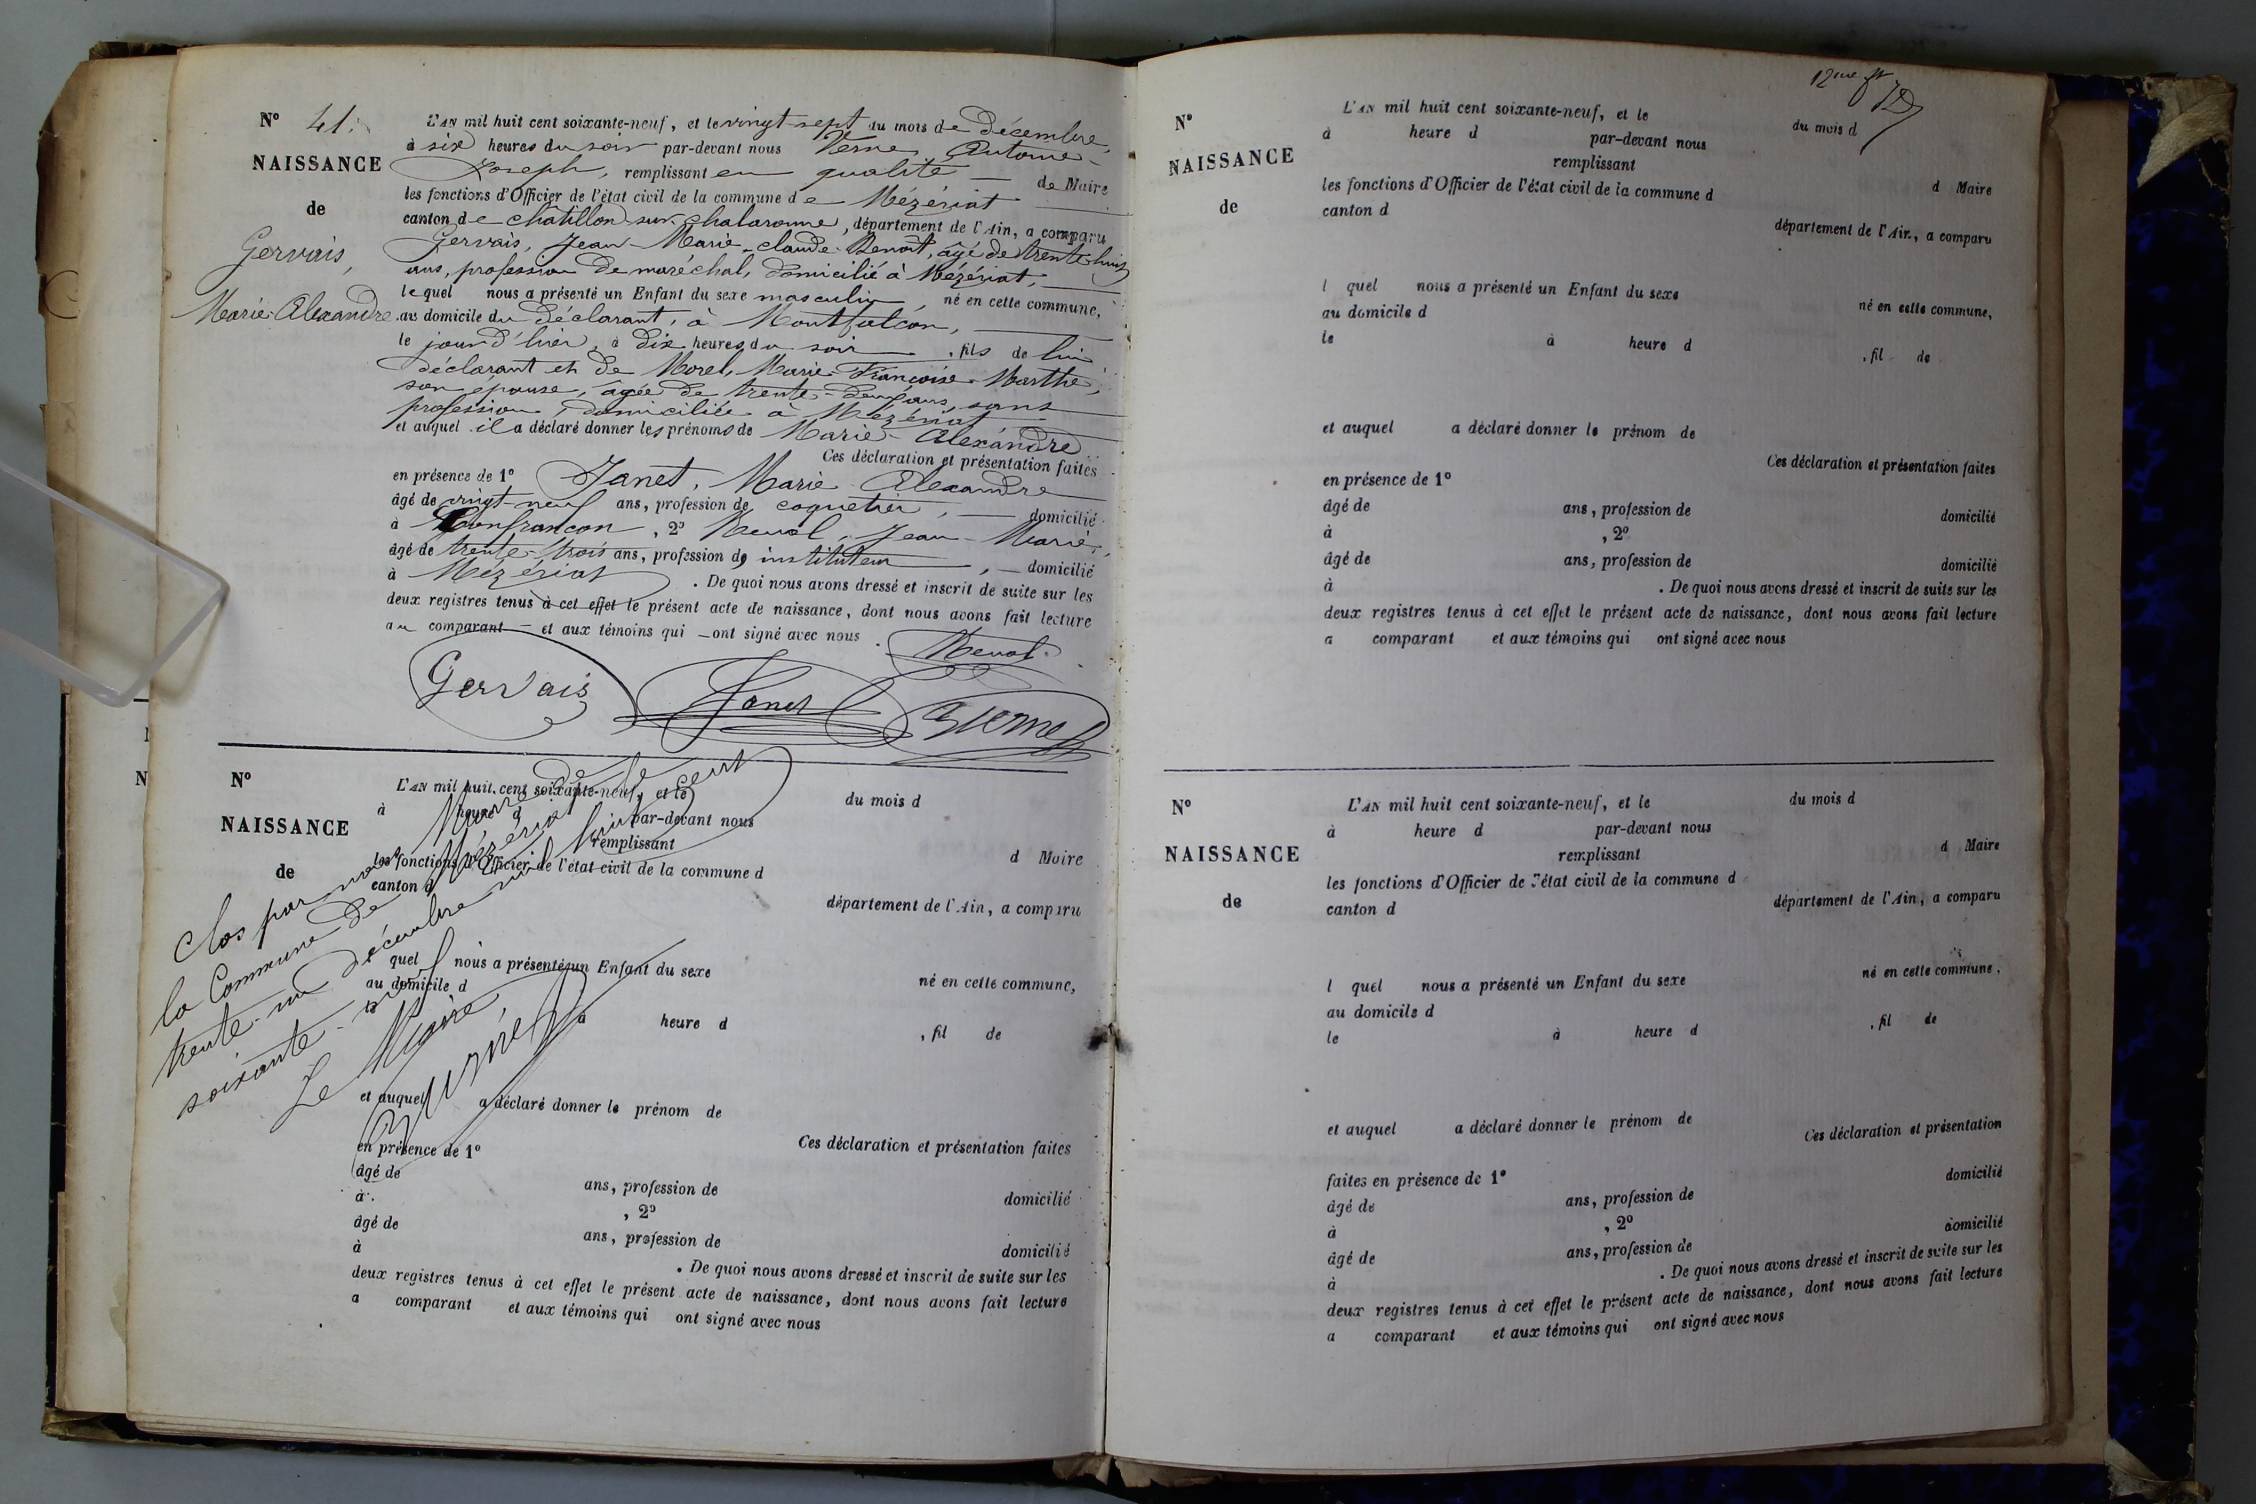 N° 41.
NAISSANCE
de
Gervais,
Marie Alexandre
L'AN mil huit cent soixante-neuf, et le vingt-sept du mois de Décembre,
à six heures du soir par-devant nous Verne, Antoine-
Joseph, remplissant en qualité de Maire
les fonctions d'Officier de l'état civil de la commune de Mézériat
canton de chatillon-sur-chalaronne, département de l'Ain, a comparu
Gervais, Jean-Marie-claude-Benoit, âgé de trente-huit
ans, profession de maréchal, domicilié à Mézériat,
lequel nous a présenté un Enfant du sexe masculin, né en cette commune,
au domicile du déclarant, à Montfalcon,
le jour d'hier, à dix heures du soir, fils de lui
déclarant et de Morel, Marie-Françoise-Marthe,
son épouse, âgée de trente-deux ans, sans
profession, domiciliée à Mézériat
et auquel il a déclaré donner les prénoms de Marie-Alexandre
Ces déclaration et présentation faites
en présence de 1° Janet, Marie Alexandre
âgé de vingt-neuf ans, profession de coquetier, domicilié
à Confrançon, 2° Jean-Marie,
âgé de trente-trois ans, profession d instituteur, domicilié
à Mézériat. De quoi nous avons dressé et inscrit de suite sur les
deux registres tenus à cet effet le présent acte de naissance, dont nous avons fait lecture
au comparant et aux témoins qui ont signé avec nous.
Gervais Janet Verne
N°
NAISSANCE
de
L'AN mil huit cent soixante-neuf, et le du mois d
à heure d par-devant nous
remplissant d Maire
les fonctions d'Officier de l'état civil de la commune d
canton d département de l'Ain, a comparu
quel nous a présenté un Enfant du sexe né en cette commune,
au domicile d
à heure d , fil de
et auquel a déclaré donner le prénom de
Ces déclaration et présentation faites
en présence de 1°
âgé de ans, profession de domicilié
à , 2°
âgé de ans, profession de domicilié
à . De quoi nous avons dressé et inscrit de suite sur les
deux registres tenus à cet effet le présent acte de naissance, dont nous avons fait lecture
a comparant et aux témoins qui ont signé avec nous
Clos par nous Maire de
la Commune de Mézériat le
trente-un décembre mil huit cent
soixante-neuf
Le Maire,
Verne
12me
N°
NAISSANCE
de
L'AN mil huit cent soixante-neuf, et le du mois d
à heure d par-devant nous
remplissant d Maire
les fonctions d'Officier de l'état civil de la commune d
canton d département de l'Ain, a comparu
l quel nous a présenté un Enfant du sexe né en cette commune,
au domicile d
le à heure d , fil de
et auquel a déclaré donner le prénom de
Ces déclaration et présentation faites
en présence de 1°
âgé de ans, profession de domicilié
à , 2°
âgé de ans, profession de domicilié
à . De quoi nous avons dressé et inscrit de suite sur les
deux registres tenus à cet effet le présent acte de naissance, dont nous avons fait lecture
a comparant et aux témoins qui ont signé avec nous
N°
NAISSANCE
de
L'AN mil huit cent soixante-neuf, et le du mois d
à heure d par-devant nous
remplissant d Maire
les fonctions d'Officier de l'état civil de la commune d
canton d département de l'Ain, a comparu
l quel nous a présenté un Enfant du sexe né en cette commune,
au domicile d
le à heure d , fil de
et auquel a déclaré donner le prénom de
Ces déclaration et présentation
faites en présence de 1° domicilié
âgé de ans, profession de
à , 2° domicilié
âgé de ans, profession de
à . De quoi nous avons dressé et inscrit de suite sur les
deux registres tenus à cet effet le présent acte de naissance, dont nous avons fait lecture
a comparant et aux témoins qui ont signé avec nous